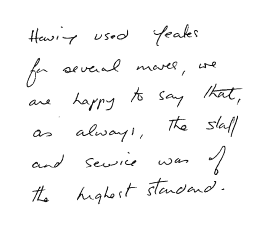 Having used Yeates
for several moves, we
are happy to say that,
as always, the staff
and service was of
the highest standard.